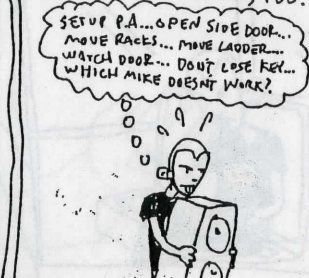 SETUP P.A... OPEN SIDE DOOR...
MOVE RACKS... MOVE LADDER....
WATCH DOOR... DON'T LOSE KEY...
WHICH MIKE DOESNT WORK?